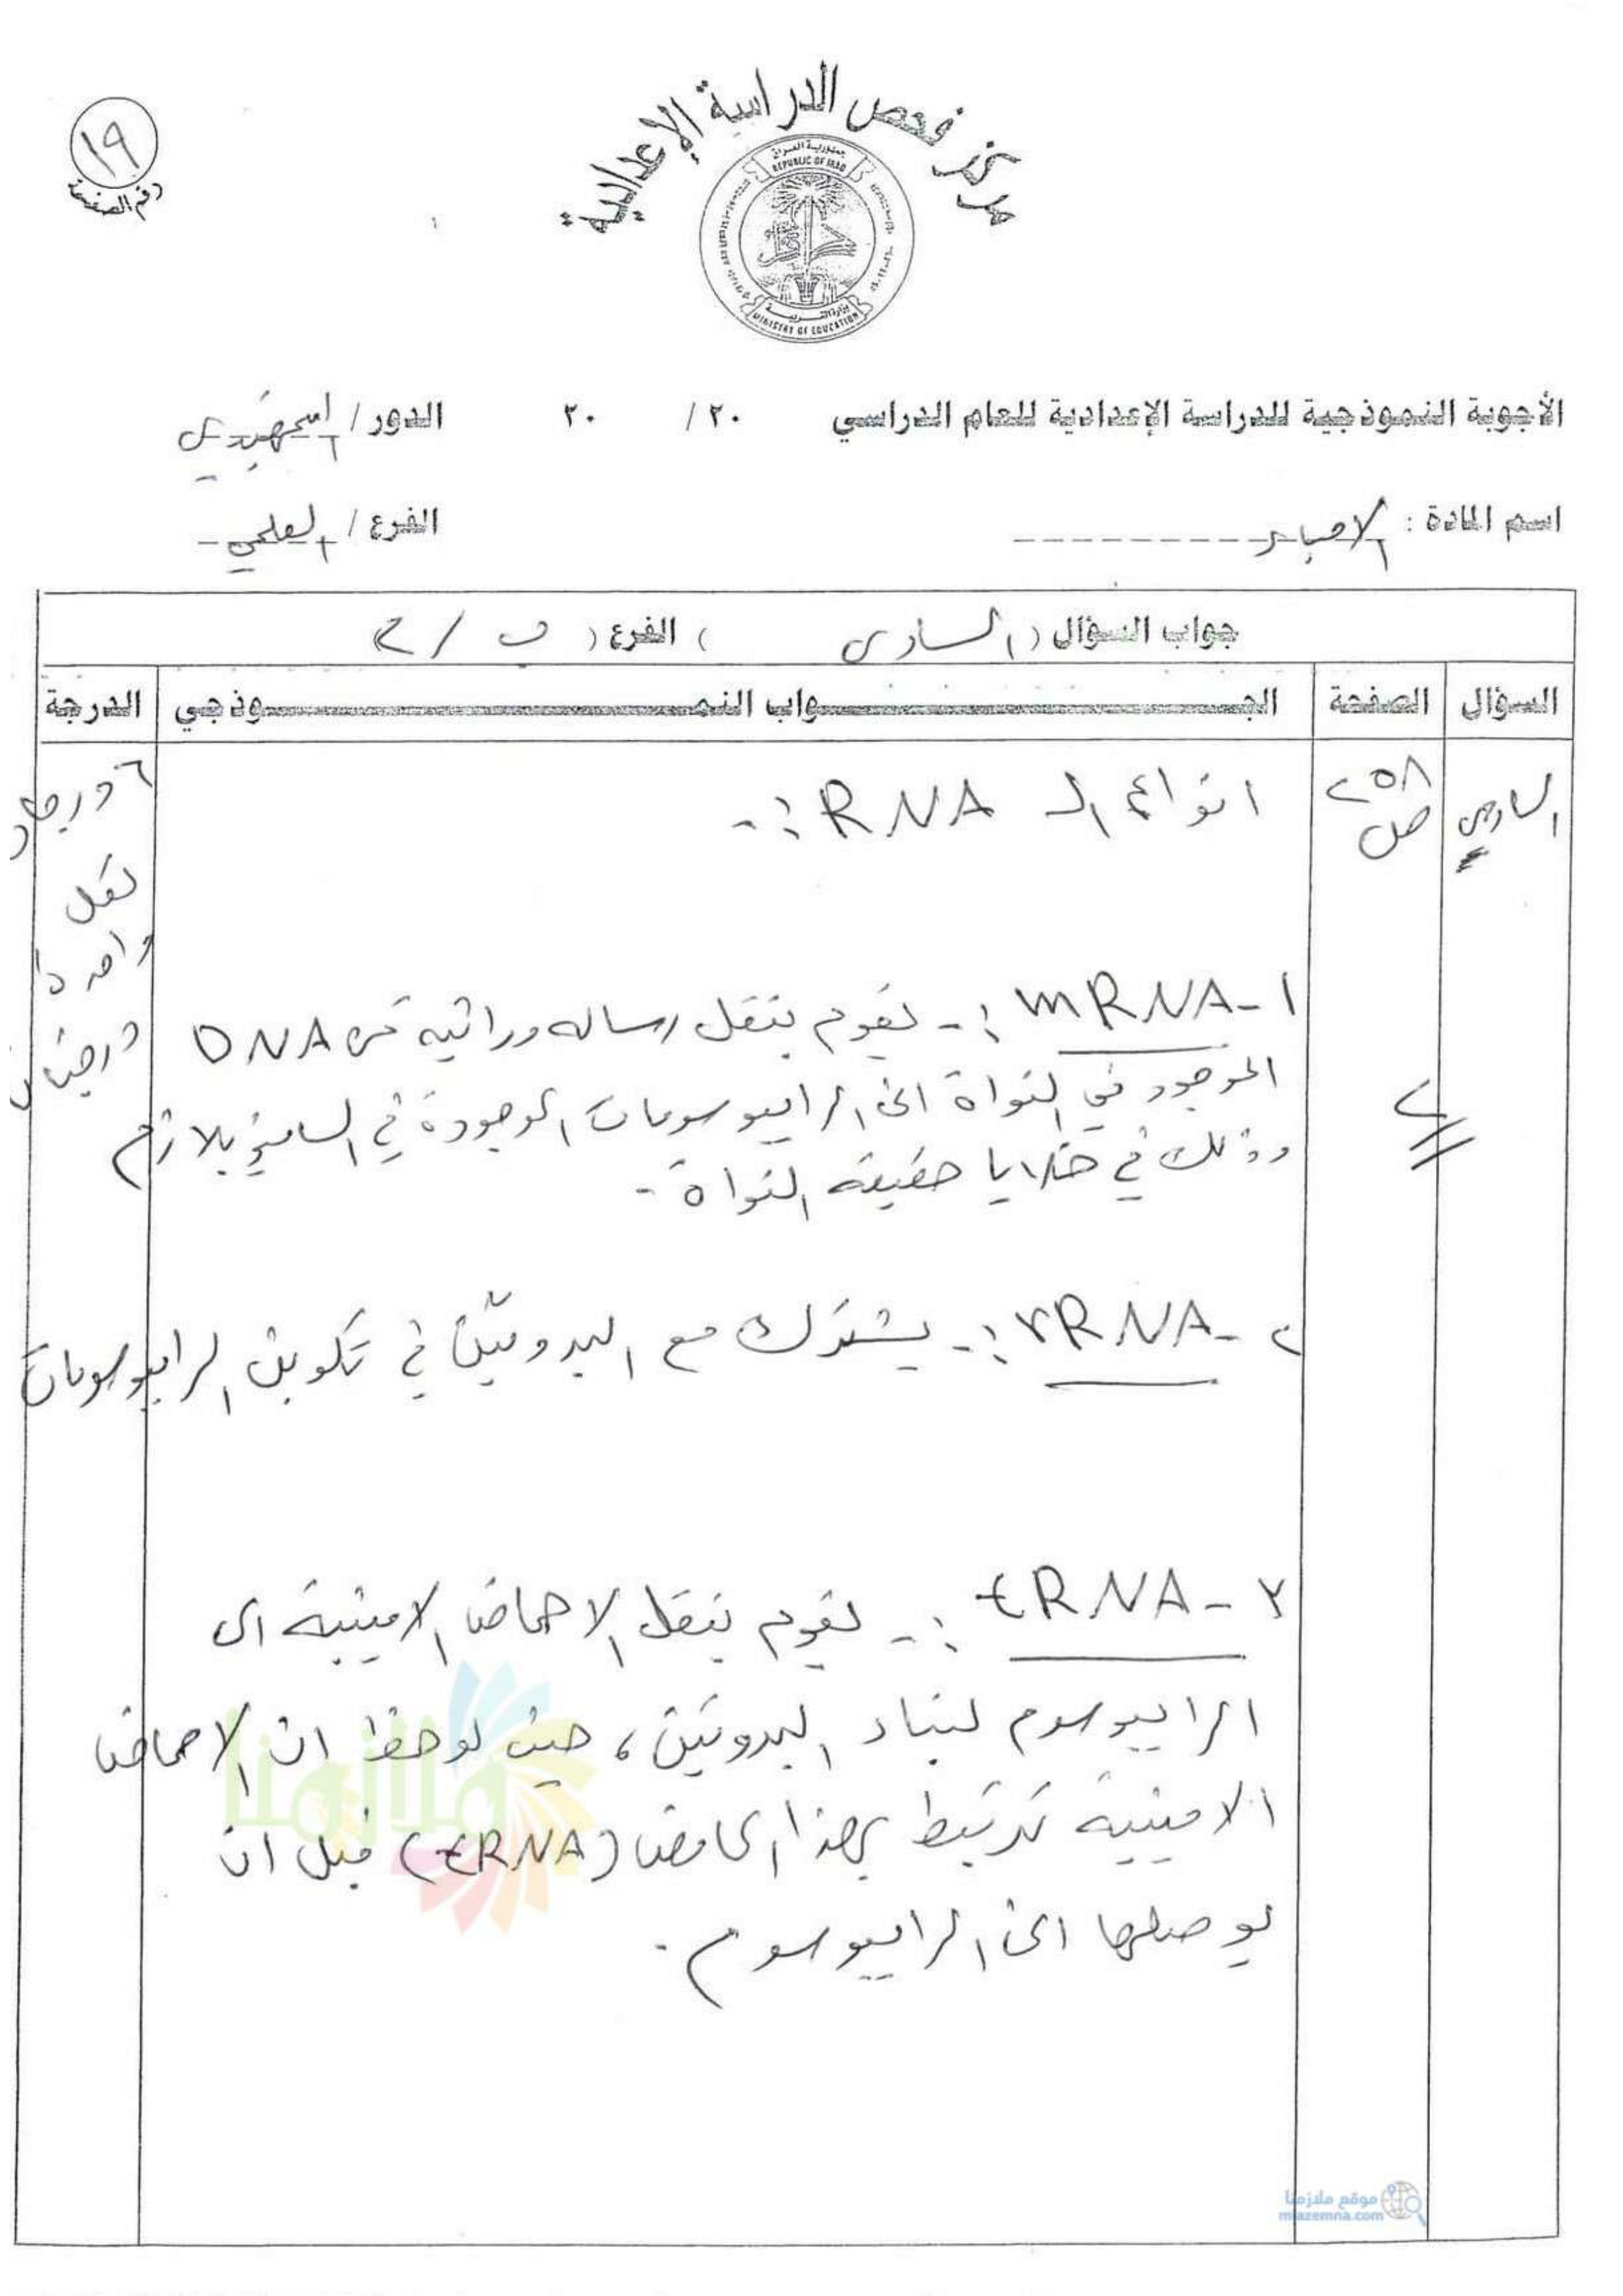 مركز فحص الدراسة الإعدادية
جمهورية العراق
REPUBLIC OF IRAQ
وزارة التربية
MINISTRY OF EDUCATION
١٩
رقم الصفحة
الأجوبة النموذجية للدراسة الإعدادية للعام الدراسي ٢٠ / ٢٠ الدور / التمهيدي
اسم المادة : الاحياء الفرع / العلمي
جواب السؤال ( السادس ) الفرع ( ب / ٢
السؤال الصفحة الجـــواب النمـــوذجي الدرجة
السادس ٢٥٨ انواع الـ RNA :- ٦ درجات
ص
لكل
واحدة
درجتان
١- mRNA :- يقوم بنقل رساله وراثيه من DNA
الموجود في النواة الى الرايبوسومات الموجودة في السايتوبلازم
وذلك في خلايا حقيقية النواة -
٢
٢- rRNA :- يشترك مع البروتين في تكوين الرايبوسومات
٣- tRNA :- يقوم بنقل الاحماض الامينية الى
الرايبوسوم لبناء البروتين ، حيث لوحظ ان الاحماض
الامينية ترتبط بهذا الحامض (tRNA) قبل ان
يوصلها الى الرايبوسوم .
ملازمنا
موقع ملازمنا
mlazemna.com